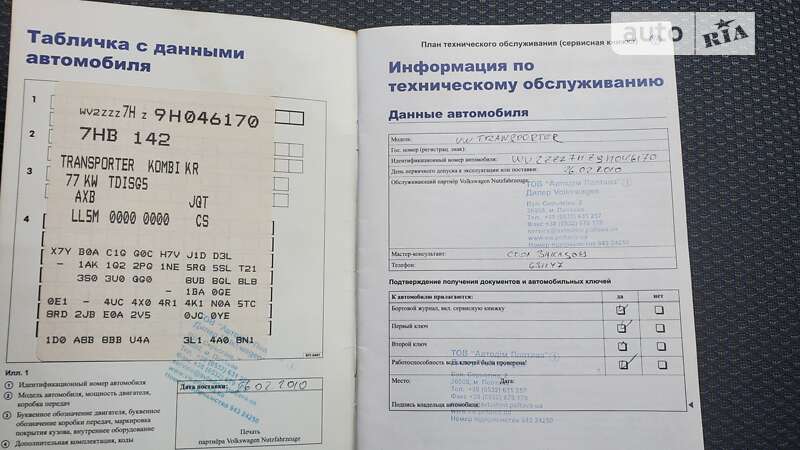 Табличка с данными
автомобиля
1
WV2ZZZ7H Z 9H046170
2
7HB 142
3
TRANSPORTER KOMBI KR
77 KW TDI5G5
AXB JGT
4
LL5M 0000 0000 CS
X7Y B0A C1G G0C H7V J1D D3L
- 1AK 1G2 2PG 1NE 5RG 5SL T21
3S0 3U0 GG0 8UB 8GL 8L8
- 1BA 0GE
0E1 - 4UC 4X0 4R1 4K1 N0A 5TC
8RD 2JB E0A 2V5 0JC 0YE
1D0 A8B 8BB U4A 3L1 4A0 8N1
Илл. 1
1 Идентификационный номер автомобиля
2 Модель автомобиля, мощность двигателя,
коробки передач
3 Буквенное обозначение двигателя, буквенное
обозначение коробки передач, маркировка
покрытия кузова, внутреннее оборудование
4 Дополнительная комплектация, коды
ТОВ "Авто
Дата поставки: 26.02.2010
943 24250
Печать
партнёра Volkswagen Nutzfahrzeuge
План технического обслуживания (сервисная книжка)
auto RIA
Информация по
техническому обслуживанию
Данные автомобиля
Модель: VW TRANSPORTER
Гос. номер (регистрац. знак):
Идентификационный номер автомобиля: WV2ZZZ7HZ9H046170
День первичного допуска к эксплуатации или поставки: 26.02.2010
Обслуживающий партнёр Volkswagen Nutzfahrzeuge:
ТОВ "Автодім Полтава"
Дилер Volkswagen
Тел. +38 (0532) 631 257
Номер підприємства 943 24250
Мастер-консультант:
Телефон: 631147
Подтверждение получения документов и автомобильных ключей
К автомобилю прилагаются: да нет
Бортовой журнал, вкл. сервисную книжку
Первый ключ
Второй ключ
Работоспособность всех ключей была проверена!
ТОВ "Автодім Полтава"
Место: Дата:
Тел. +38 (0532) 631 257
Подпись владельца автомобиля:
Номер підприємства 943 24250